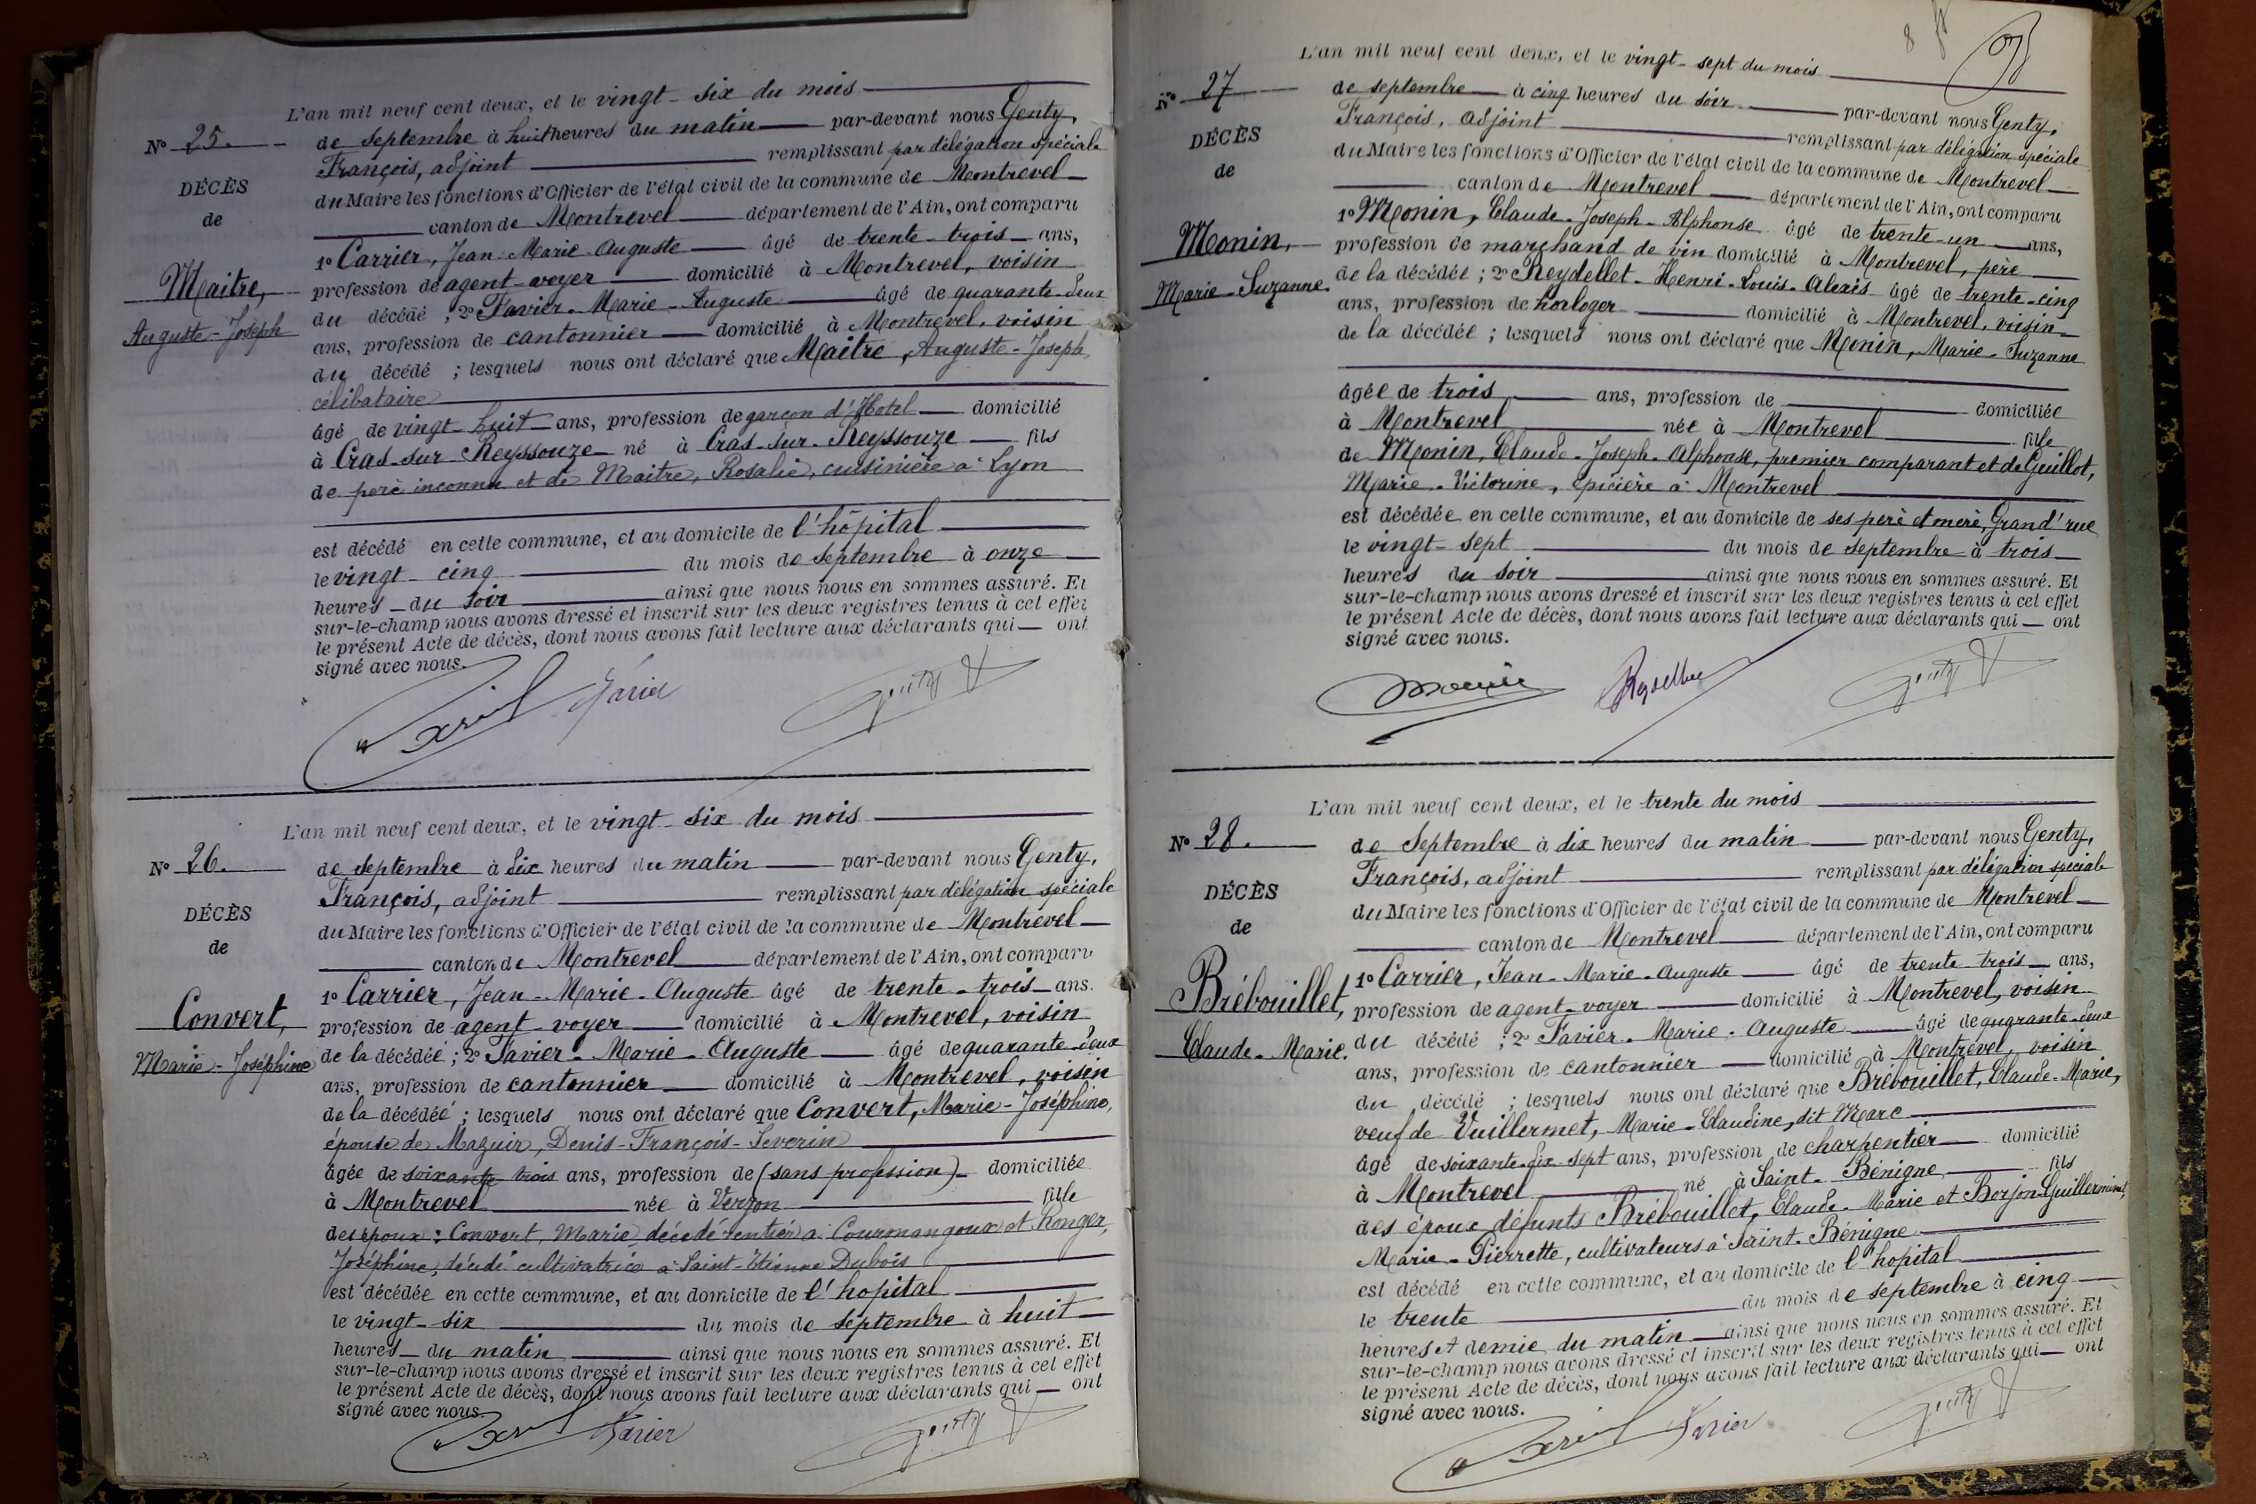 L'an mil neuf cent deux, et le vingt-six du mois
N° 25.
de septembre à huit heures du matin par-devant nous Genty,
François, adjoint remplissant par délégation spéciale
DÉCÈS
du Maire les fonctions d'Officier de l'état civil de la commune de Montrevel
de
canton de Montrevel département de l'Ain, ont comparu
1° Carrier, Jean-Marie-Auguste âgé de trente-trois ans,
Maitre,
profession de agent-voyer domicilié à Montrevel, voisin
Auguste-Joseph
du décédé ; 2° Favier-Marie-Auguste âgé de quarante-deux
ans, profession de cantonnier domicilié à Montrevel, voisin
du décédé ; lesquels nous ont déclaré que Maitre, Auguste-Joseph,
célibataire
âgé de vingt-huit ans, profession de garçon d'Hotel domicilié
à Cras-sur-Reyssouze né à Cras-sur-Reyssouze fils
de père inconnu et de Maitre, Rosalie, cuisinière à Lyon
est décédé en cette commune, et au domicile de l'hôpital
le vingt-cinq du mois de septembre à onze
heures du soir ainsi que nous nous en sommes assuré. Et
sur-le-champ nous avons dressé et inscrit sur les deux registres tenus à cet effet
le présent Acte de décès, dont nous avons fait lecture aux déclarants qui ont
signé avec nous.
Favier Genty
L'an mil neuf cent deux, et le vingt-six du mois
N° 26.
de septembre à dix heures du matin par-devant nous Genty,
François, adjoint remplissant par délégation spéciale
DÉCÈS
du Maire les fonctions d'Officier de l'état civil de la commune de Montrevel
de
canton de Montrevel département de l'Ain, ont comparu
1° Carrier, Jean-Marie-Auguste âgé de trente-trois ans.
Convert,
profession de agent-voyer domicilié à Montrevel, voisin
Marie-Joséphine
de la décédée ; 2° Favier-Marie-Auguste âgé de quarante-deux
ans, profession de cantonnier domicilié à Montrevel, voisin
de la décédée ; lesquels nous ont déclaré que Convert, Marie-Joséphine,
épouse de Mazuir, Denis-François-Severin
âgée de soixante trois ans, profession de (sans profession) domiciliée
à Montrevel née à Verjon fille
des époux : Convert, Marie, décédé rentier à Courmangoux et Ronger,
Joséphine, décédé cultivatrice à Saint-Etienne Dubois
est décédée en cette commune, et au domicile de l'hopital
le vingt-six du mois de septembre à huit
heures du matin ainsi que nous nous en sommes assuré. Et
sur-le-champ nous avons dressé et inscrit sur les deux registres tenus à cet effet
le présent Acte de décès, dont nous avons fait lecture aux déclarants qui ont
signé avec nous.
Favier Genty
8
L'an mil neuf cent deux, et le vingt-sept du mois
N° 27
de septembre à cinq heures du soir par-devant nous Genty,
François, adjoint remplissant par délégation spéciale
DÉCÈS
du Maire les fonctions d'Officier de l'état civil de la commune de Montrevel
de
canton de Montrevel département de l'Ain, ont comparu
1° Monin, Claude-Joseph-Alphonse âgé de trente-un ans,
Monin,
profession de marchand de vin domicilié à Montrevel, père
Marie-Suzanne.
de la décédée ; 2° Reydellet-Henri-Louis-Alexis âgé de trente-cinq
ans, profession de horloger domicilié à Montrevel, voisin
de la décédée ; lesquels nous ont déclaré que Monin, Marie-Suzanne
âgée de trois ans, profession de domiciliée
à Montrevel née à Montrevel fille
de Monin, Claude-Joseph-Alphonse, premier comparant et de Guillot,
Marie-Victorine, épicière à Montrevel
est décédée en cette commune, et au domicile de ses père et mère, Grand'rue
le vingt-sept du mois de septembre à trois
heures du soir ainsi que nous nous en sommes assuré. Et
sur-le-champ nous avons dressé et inscrit sur les deux registres tenus à cet effet
le présent Acte de décès, dont nous avons fait lecture aux déclarants qui ont
signé avec nous.
Monin Reydellet Genty
L'an mil neuf cent deux, et le trente du mois
N° 28.
de Septembre à dix heures du matin par-devant nous Genty,
François, adjoint remplissant par délégation spéciale
DÉCÈS
du Maire les fonctions d'Officier de l'état civil de la commune de Montrevel
de
canton de Montrevel département de l'Ain, ont comparu
1° Carrier, Jean-Marie-Auguste âgé de trente-trois ans,
Brébouillet,
profession de agent-voyer domicilié à Montrevel, voisin
Claude-Marie.
du décédé ; 2° Favier-Marie-Auguste âgé de quarante-deux
ans, profession de cantonnier domicilié à Montrevel, voisin
du décédé ; lesquels nous ont déclaré que Brébouillet, Claude-Marie,
veuf de Vuillermet, Marie-Claudine, dit Marc
âgé de soixante-dix-sept ans, profession de charpentier domicilié
à Montrevel né à Saint-Bénigne fils
des époux défunts Brébouillet, Claude-Marie et Borjon-Guillerminet,
Marie-Pierrette, cultivateurs à Saint-Bénigne
est décédé en cette commune, et au domicile de l'hopital
le trente du mois de septembre à cinq
heures et demie du matin ainsi que nous nous en sommes assuré. Et
sur-le-champ nous avons dressé et inscrit sur les deux registres tenus à cet effet
le présent Acte de décès, dont nous avons fait lecture aux déclarants qui ont
signé avec nous.
Favier Genty